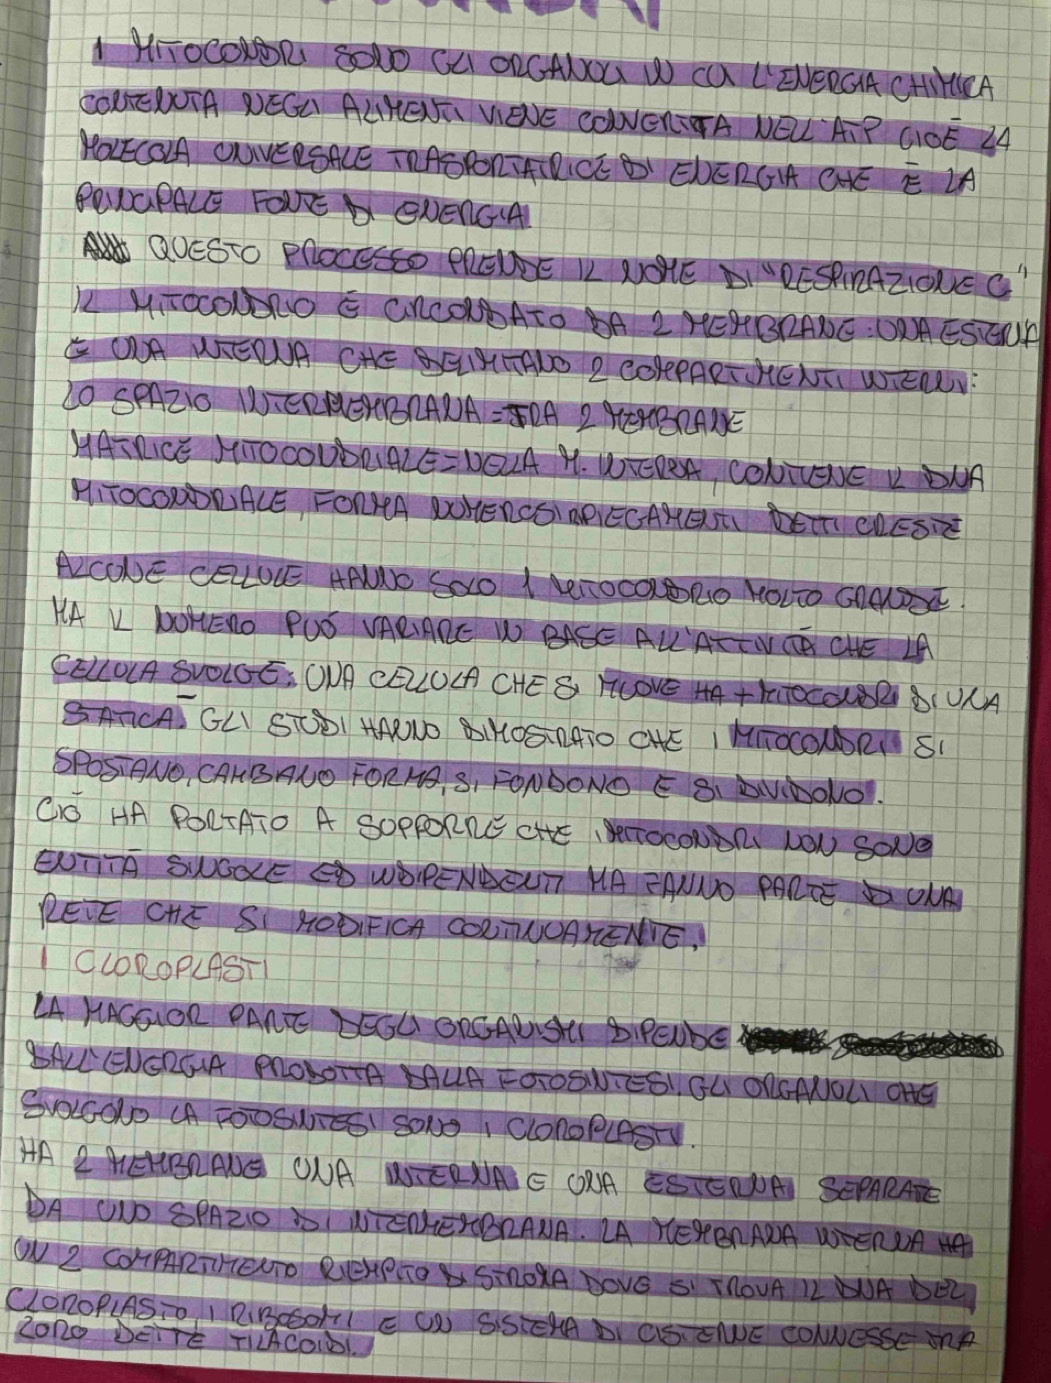 I MITOCONDRI SONO GLI ORGANULI IN CUI L'ENERGIA CHIMICA
CONTENUTA NEGLI ALIMENTI VIENE CONVERTITA NELL'ATP CIOÈ LA
MOLECOLA UNIVERSALE TRASPORTATRICE DI ENERGIA CHE È LA
PRINCIPALE FONTE DI ENERGIA.
QUESTO PROCESSO PRENDE IL NOME DI "RESPIRAZIONE C"
IL MITOCONDRIO È CIRCONDATO DA 2 MEMBRANE: UNA ESTERNA
E UNA INTERNA CHE DELIMITANO 2 COMPARTIMENTI INTERNI:
LO SPAZIO INTERMEMBRANA = TRA 2 MEMBRANE
MATRICE MITOCONDRIALE = NELLA M. INTERNA, CONTIENE IL DNA
MITOCONDRIALE, FORMA NUMEROSI RIPIEGAMENTI DETTI CRESTE
ALCUNE CELLULE HANNO SOLO 1 MITOCONDRIO MOLTO GRANDE.
MA IL NUMERO PUÒ VARIARE IN BASE ALL'ATTIVITÀ CHE LA
CELLULA SVOLGE: UNA CELLULA CHE SI MUOVE HA + MITOCONDRI DI UNA
STATICA. GLI STUDI HANNO DIMOSTRATO CHE I MITOCONDRI SI
SPOSTANO, CAMBIANO FORMA, SI FONDONO E SI DIVIDONO.
CIÒ HA PORTATO A SUPPORRE CHE I MITOCONDRI NON SONO
ENTITÀ SINGOLE ED INDIPENDENTI MA FANNO PARTE DI UNA
RETE CHE SI MODIFICA CONTINUAMENTE.
I CLOROPLASTI
LA MAGGIOR PARTE DEGLI ORGANISMI DIPENDE
DALL'ENERGIA PRODOTTA DALLA FOTOSINTESI. GLI ORGANULI CHE
SVOLGONO LA FOTOSINTESI SONO I CLOROPLASTI.
HA 2 MEMBRANE UNA INTERNA E UNA ESTERNA SEPARATE
DA UNO SPAZIO DI INTERMEMBRANA. LA MEMBRANA INTERNA HA
UN 2 COMPARTIMENTO RIEMPITO DI STROMA DOVE SI TROVA IL DNA DEL
CLOROPLASTO, I RIBOSOMI E UN SISTEMA DI CISTERNE CONNESSE TRA
LORO DETTE TILACOIDI.